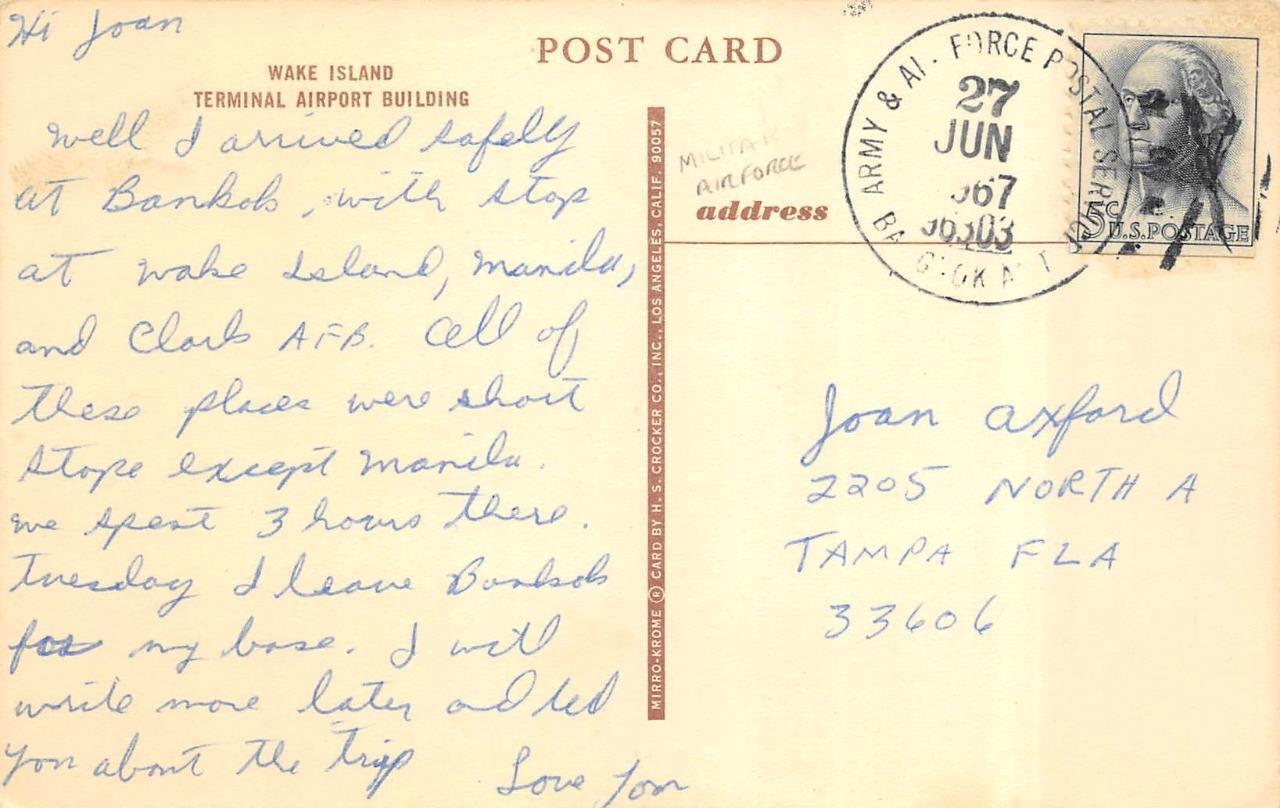 Hi Joan
POST CARD
WAKE ISLAND
TERMINAL AIRPORT BUILDING
Well I arrived safely
at Bankok, with stop
at Wake Island, Manila,
and Clark AFB. All of
these places were short
stops except Manila.
we spent 3 hours there.
Tuesday I leave Bankok
for my base. I will
write more later and tell
you about the trip
Love Tom
MIRRO-KROME ® CARD BY H. S. CROCKER CO., INC., LOS ANGELES, CALIF. 90057
MILITARY
AIRFORCE
address
ARMY & AI FORCE POSTAL SERVICE
27
JUN
967
96303
BA G OK A T
5c U.S. POSTAGE
Joan Axford
2205 NORTH A
TAMPA FLA
33606